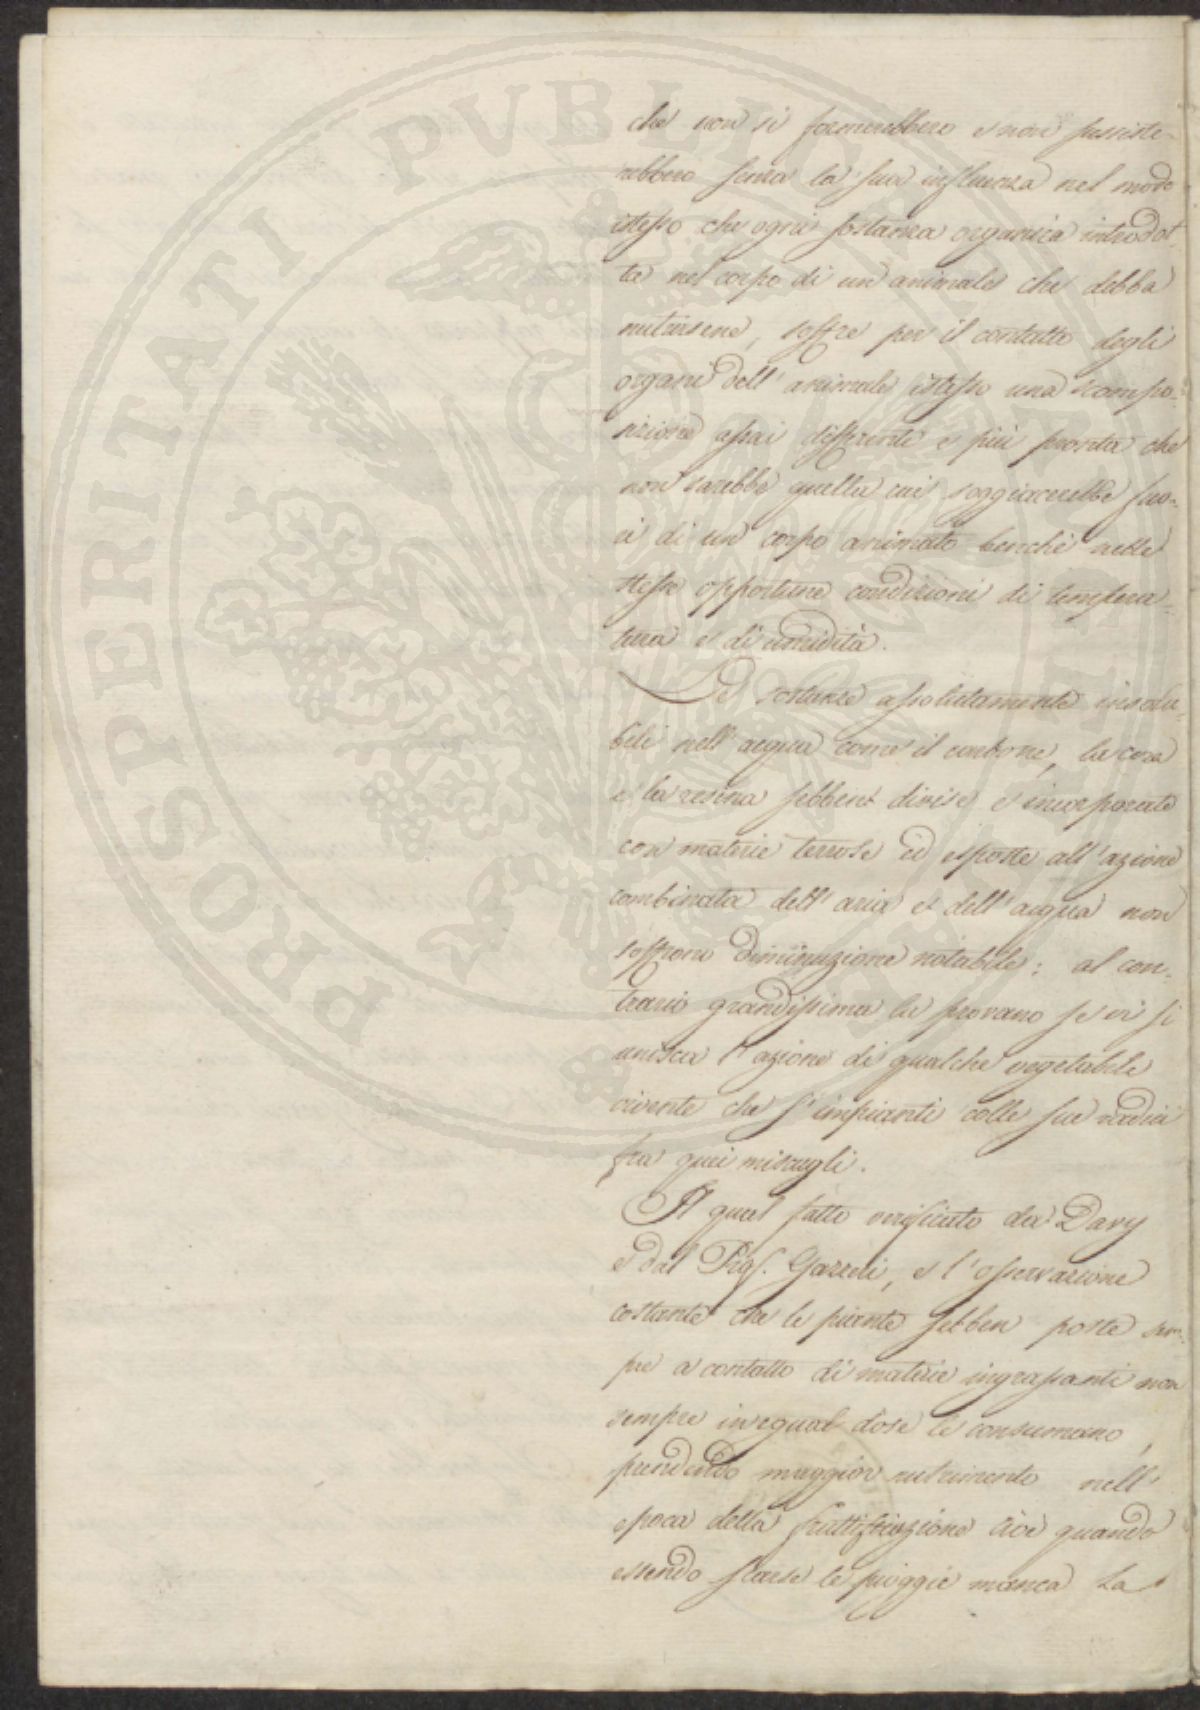 PROSPERITATI PUBLICAE AUGENDAE
che non si formerebbero e non sussiste-
rebbero senza la sua influenza nel modo
istesso che ogni sostanza organica introdot-
ta nel corpo di un animale che debba
nutrirsene, soffre per il contatto degli
organi dell' animale istesso una scompo-
sizione assai differente e più pronta che
non sarebbe quella cui soggiacerebbe fuo-
ri di un corpo animato benchè nelle
stesse opportune condizioni di tempera-
tura e di umidità.
Le sostanze assolutamente insolu-
bili nell' acqua come il carbone, la cera
e la resina sebbene divise e incorporate
con materie terrose ed esposte all' azione
combinata dell' aria e dell' acqua non
soffrono diminuzione notabile: al con-
trario grandissima la provano se vi si
unisca l' azione di qualche vegetabile
vivente che s' impianti colle sue radici
fra quei miscugli.
Il qual fatto verificato da Davy
e dal Prof. Gazzeri, e l' osservazione
costante che le piante sebben poste sem-
pre a contatto di materie ingrassanti non
sempre in egual dose le consumano,
prendendo maggior nutrimento nell'
epoca della fruttificazione cioè quando
essendo scarse le pioggie manca la